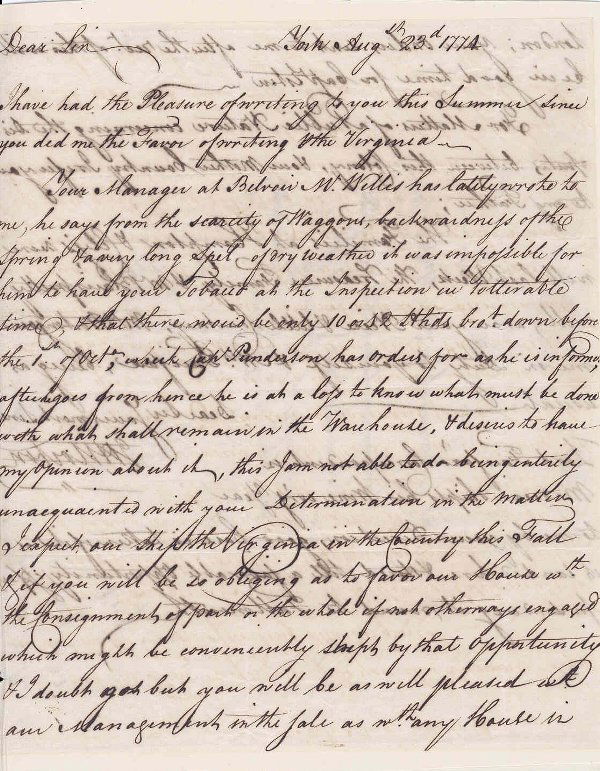 Dear Sir York Augst 23d 1774
I have had the Pleasure of writing to you this Summer since
you did me the Favor of writing the Virginia
Your Manager at Belvoir Mr. Willis has lately wrote to
me, he says from the scarcity of Waggons, backwardness of the
Spring & a very long Spel of dry weather it was impossible for
him to have your Tobacco at the Inspection in tollerable
time & that there wou'd be only 10 or 12 Hhds brot. down before
the 1st of Octr, which Capt. Punderson has orders for as he is informed
after goes from hence he is at a loss to know what must be done
with what shall remain in the Warehouse, & desires to have
my Opinion about it, this I am not able to do being entirely
unacquainted with your Determination in the Matter
I expect our Ship the Virginia in the Country this Fall
& if you will be so obliging as to favor our House wth.
the Consignment of part or the whole if not otherways engaged
which might be conveniently shipt by that Opportunity
& I doubt not but you will be as well pleased wth
our Management in the sale as wth any House in